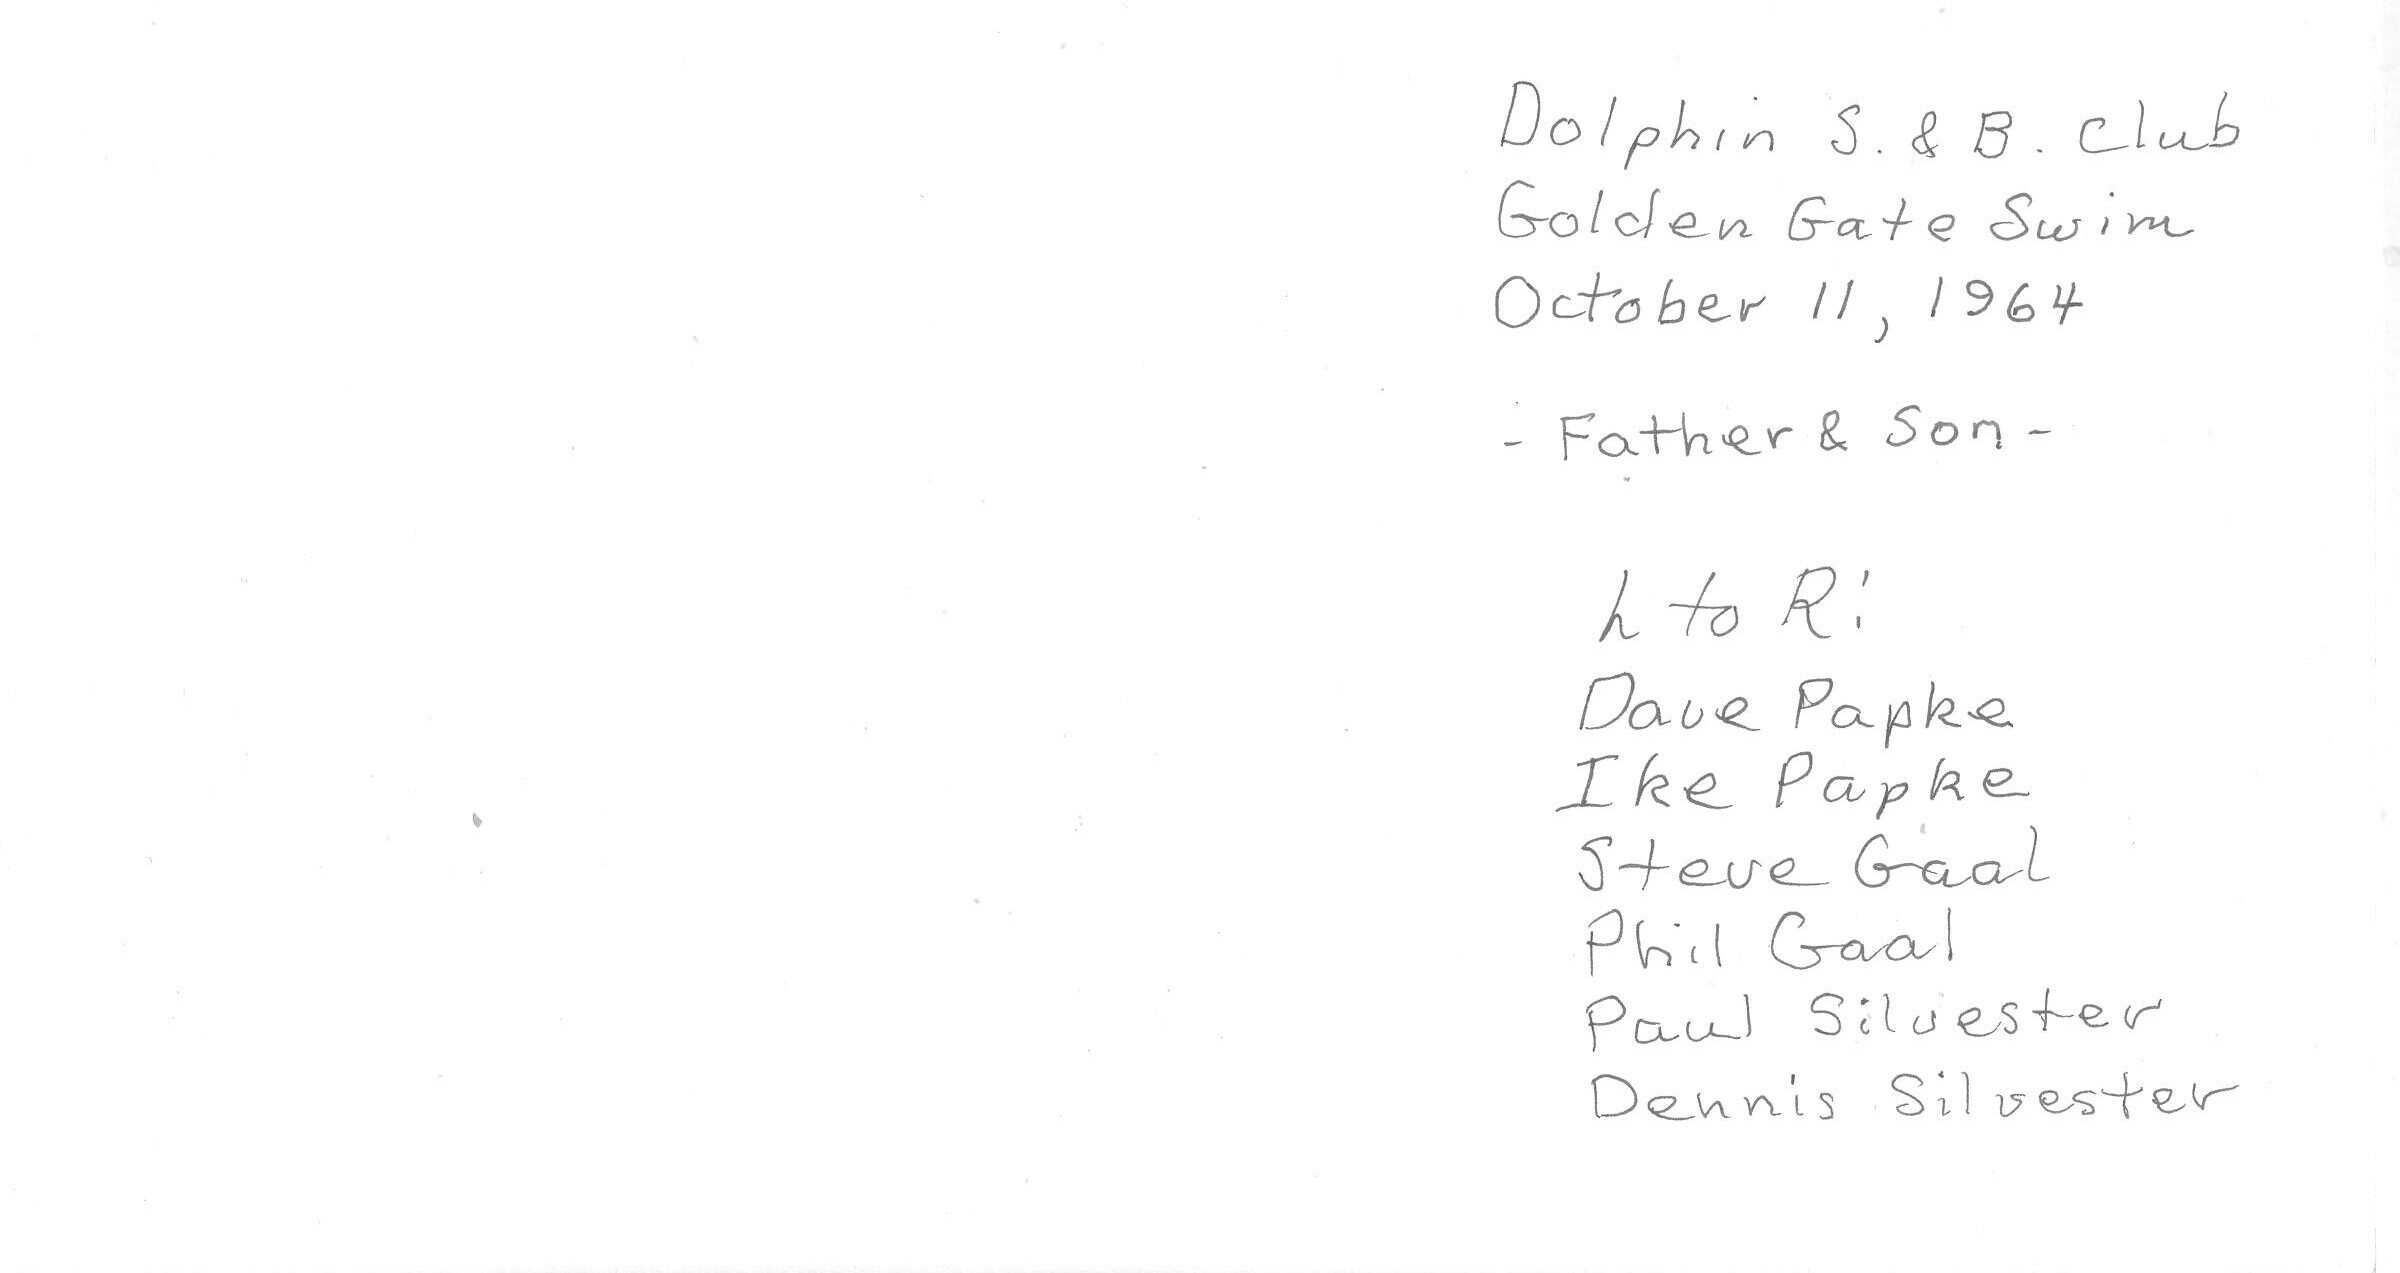 Dolphin S. & B. Club
Golden Gate Swim
October 11, 1964
- Father & Son -
L to R:
Dave Papke
Ike Papke
Steve Gaal
Phil Gaal
Paul Silvester
Dennis Silvester